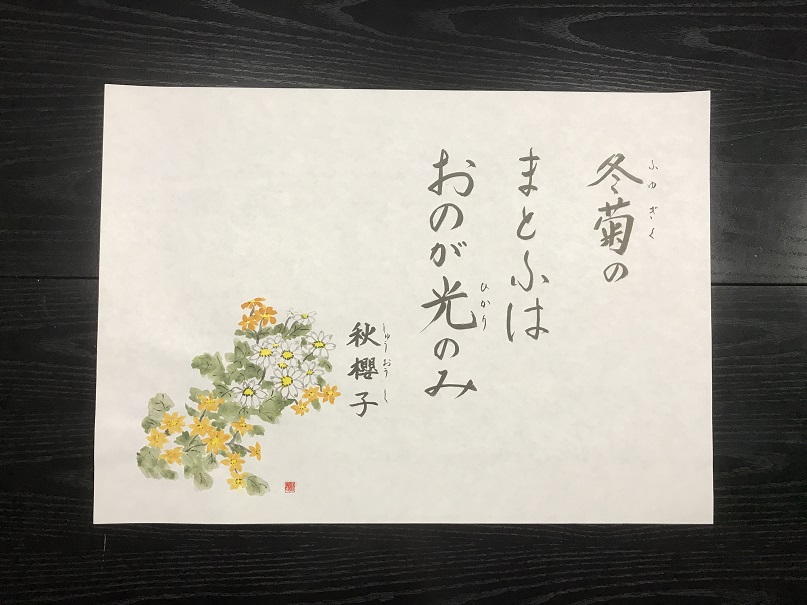 冬菊の
ふゆぎく
まとふは
おのが光のみ
ひかり
秋櫻子
しゅうおうし